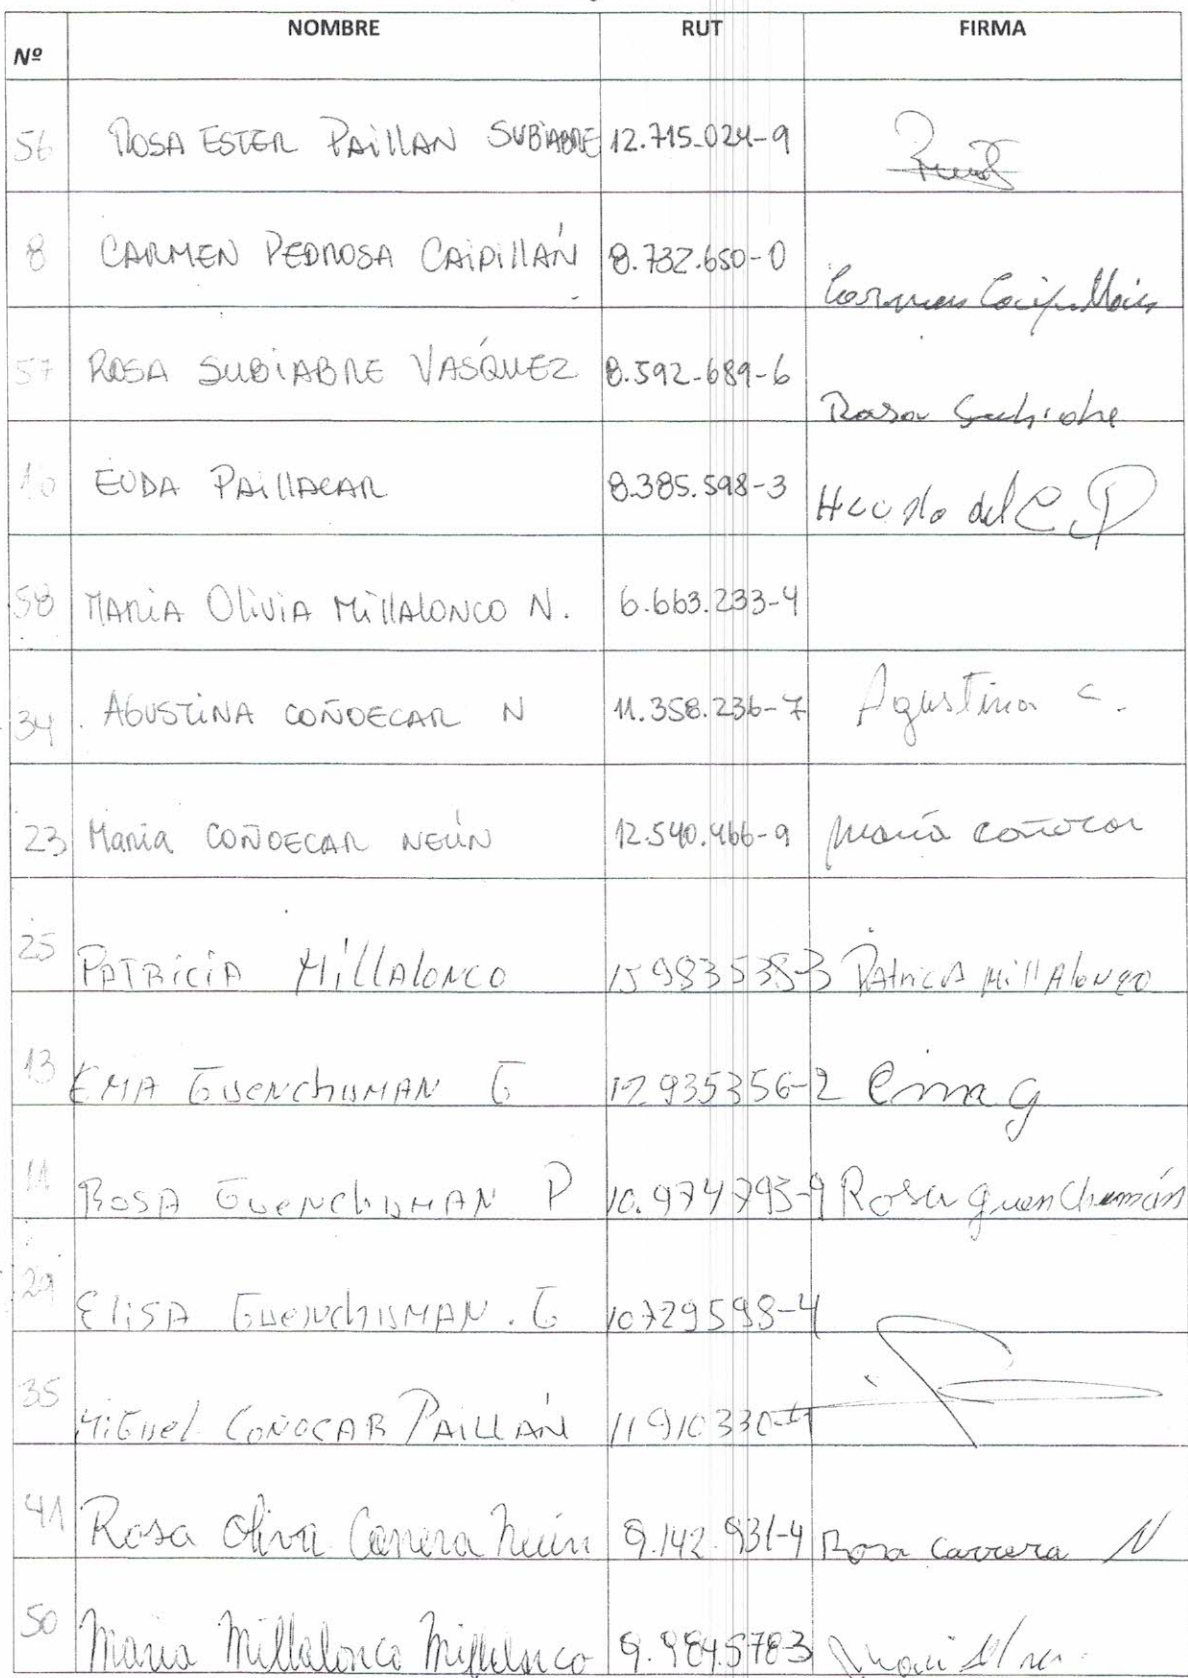 Nº NOMBRE RUT FIRMA
56 ROSA ESTER PAILLAN SUBIABRE 12.715.024-9
8 CARMEN PEDROSA CAIPILLÁN 8.732.650-0 Carmen Caipillán
57 ROSA SUBIABRE VASQUEZ 8.592.689-6 Rosa Subiabre
10 EUDA PAILLACAR 8.385.598-3 del C P
58 MARIA OLIVIA MILLALONCO N. 6.663.233-4
34 AGUSTINA COÑOECAR N 11.358.236-7 Agustina C.
23 Maria COÑOECAR NEÚN 12.540.466-9 María coñocar
25 PATRICIA MILLALONCO 15983538-3 Patricia Millalonco
13 EMA GUENCHUMAN G 12935356-2 Ema g
11 ROSA GUENCHUMAN P 10.974793-9 Rosa guenchumán
29 ELISA GUENCHUMAN. G 10729598-4
35 MIGUEL COÑOCAR PAILLÁN 11910330-
41 Rosa Oliva Carrera Neún 9.142.931-4 Rosa Carrera N
50 Maria Millalonco Millalonco 9.984.578-3